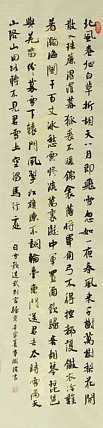 北風卷地白草折胡天八月即飛雪忽如一夜春風來千樹萬樹梨花開
散入珠簾濕羅幕狐裘不暖錦衾薄將軍角弓不得控都護鐵衣冷難
著瀚海闌干百丈冰愁雲慘淡萬里凝中軍置酒飲歸客胡琴琵琶
與羌笛紛紛暮雪下轅門風掣紅旗凍不翻輪臺東門送君去去時雪滿天
山路山迴路轉不見君雪上空留馬行處 白雪歌送武判官歸京